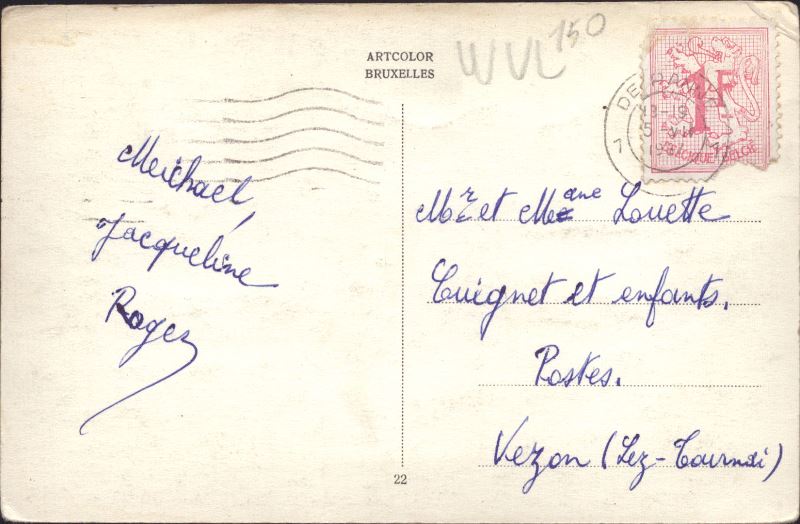 ARTCOLOR
BRUXELLES
WVL 150
1F
BELGIQUE-BELGIË
DE PANNE
18-19
5
Meichael,
Jacqueline
Roger
Mr et Mme Louette
Cuignet et enfants.
Postes.
Vezon (Lez-Tournai)
22